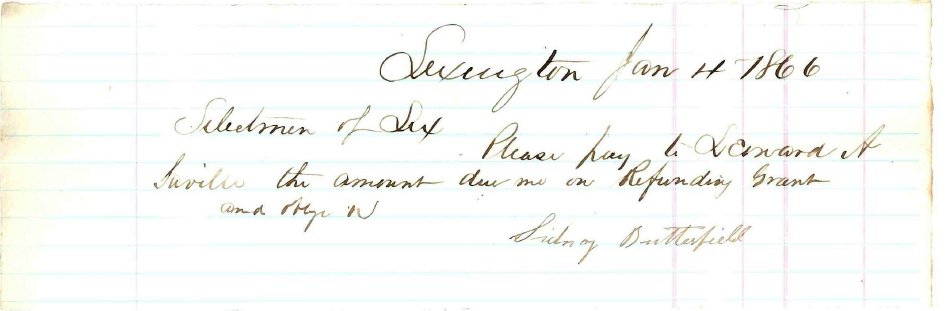 Lexington Jan 4 1866
Selectmen of Lex
Please pay to Leonard A
Saville the amount due me on Refunding Grant
and oblige
Sidney Butterfield